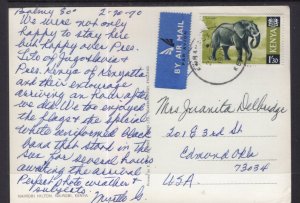 Balmy 80° 2-20-70
We were not only
happy to stay here
but happy over Pres.
Tito of Jugoslavia &
Pres. Kenyatta of Kenya
and their entourage
arriving an hour after
we did. We too enjoyed
the flags & the splendid
white uniformed black
band that stood in the
sun for several hours
awaiting the arrival
Perfect photo weather &
subjects.
Myrtle G.
NAIROBI HILTON, NAIROBI, KENYA
BY AIR MAIL
KENYA
1/30
Mrs Juanita Delbridge
201 E 3rd St
Edmond Okla
73034
U.S.A.